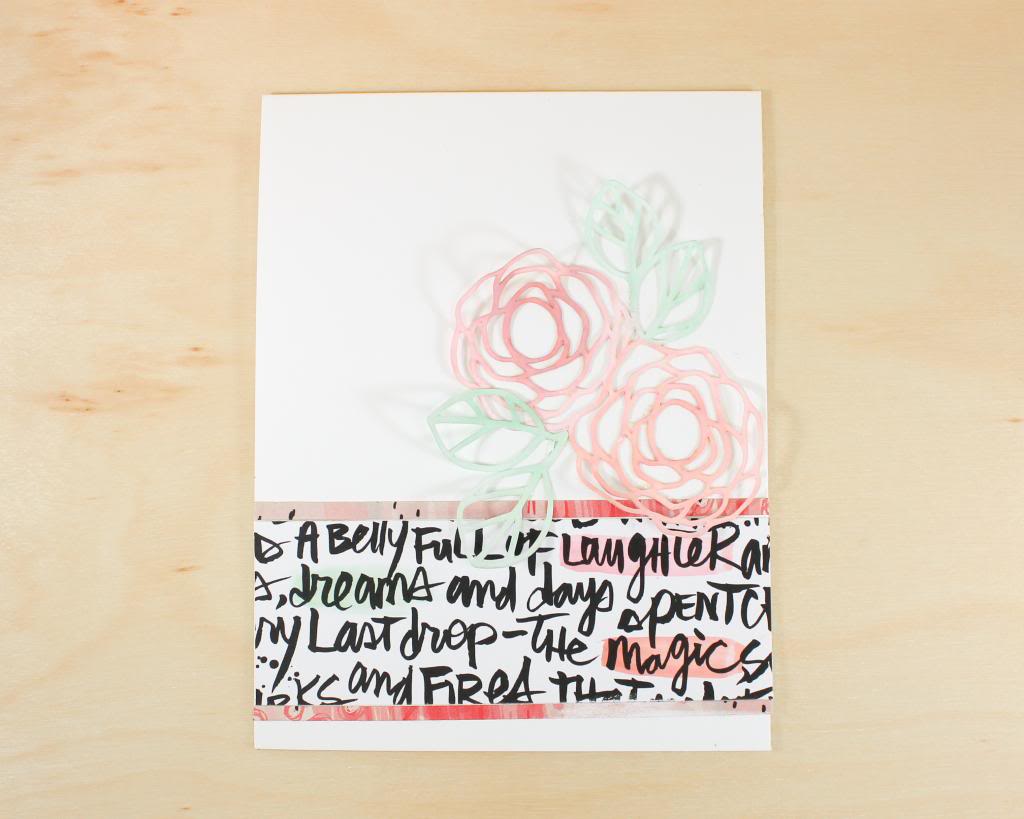 A Belly FuLL oF LaughteR
dreams and days spent
Last drop - THe magic
and FiRes THat